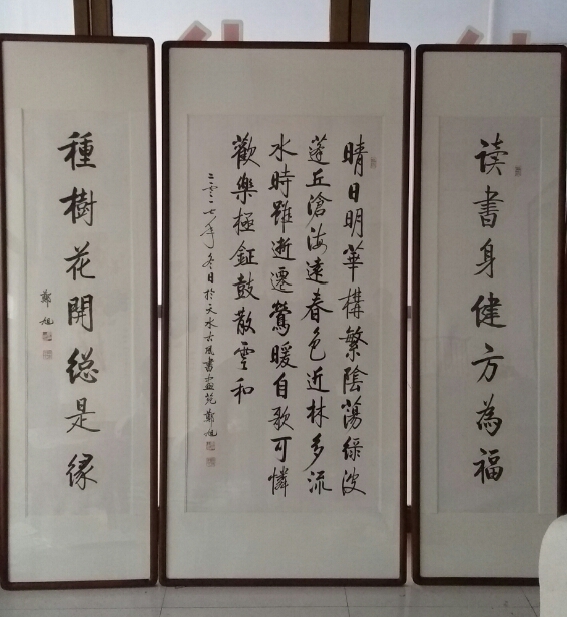 读書身健方為福
晴日明華構繁陰蕩綠波
蓬丘滄海遠春色近林多流
水時雖逝遷鶯暖自歌可憐
歡樂極鉦鼓散雲和
二零一七年冬日於天水古風書畫苑鄭旭
種樹花開総是緣
鄭旭